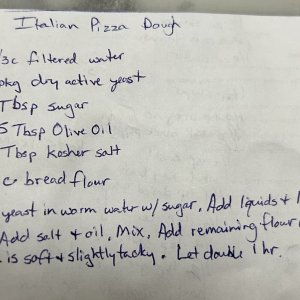 Italian Pizza Dough
/3c filtered water
pkg dry active yeast
Tbsp sugar
5 Tbsp Olive Oil
Tbsp kosher salt
c bread flour
yeast in worm water w/ sugar. Add liquids +
Add salt + oil, Mix, Add remaining flour
is soft + slightly tacky. Let double 1 hr.